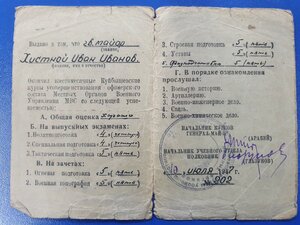 Выдано в том, что гв. майор
(звание,
Хистной Иван Иванов.
(фамилия, имя и отчество)
Окончил шестимесячные Куйбышевские
курсы усовершенствования офицерского
состава Местных Органов Военного
Управления МВС со следующей успе-
ваемостью:
А. Общая оценка
Б. На выпускных экзаменах:
1. Политподготовка 5
2. Специальная подготовка 4
3. Тактическая подготовка 4
В. На зачетах:
1. Огневая подготовка 5 (пять)
2. Военная топография 5 (пять)
3. Строевая подготовка 5 (пять)
4. Уставы 5 (пять)
5. 5 (пять)
Г. В порядке ознакомления
прослушал:
1. Военную историю.
2. Артиллерию.
3. Военно-инженерное дело.
4. Связь.
5. Военно-химическое дело.
НАЧАЛЬНИК КУРСОВ
ГЕНЕРАЛ-МАЙОР
НАЧАЛЬНИК УЧЕБНОГО ОТДЕЛА
ПОДПОЛКОВНИК
июля
№ 902